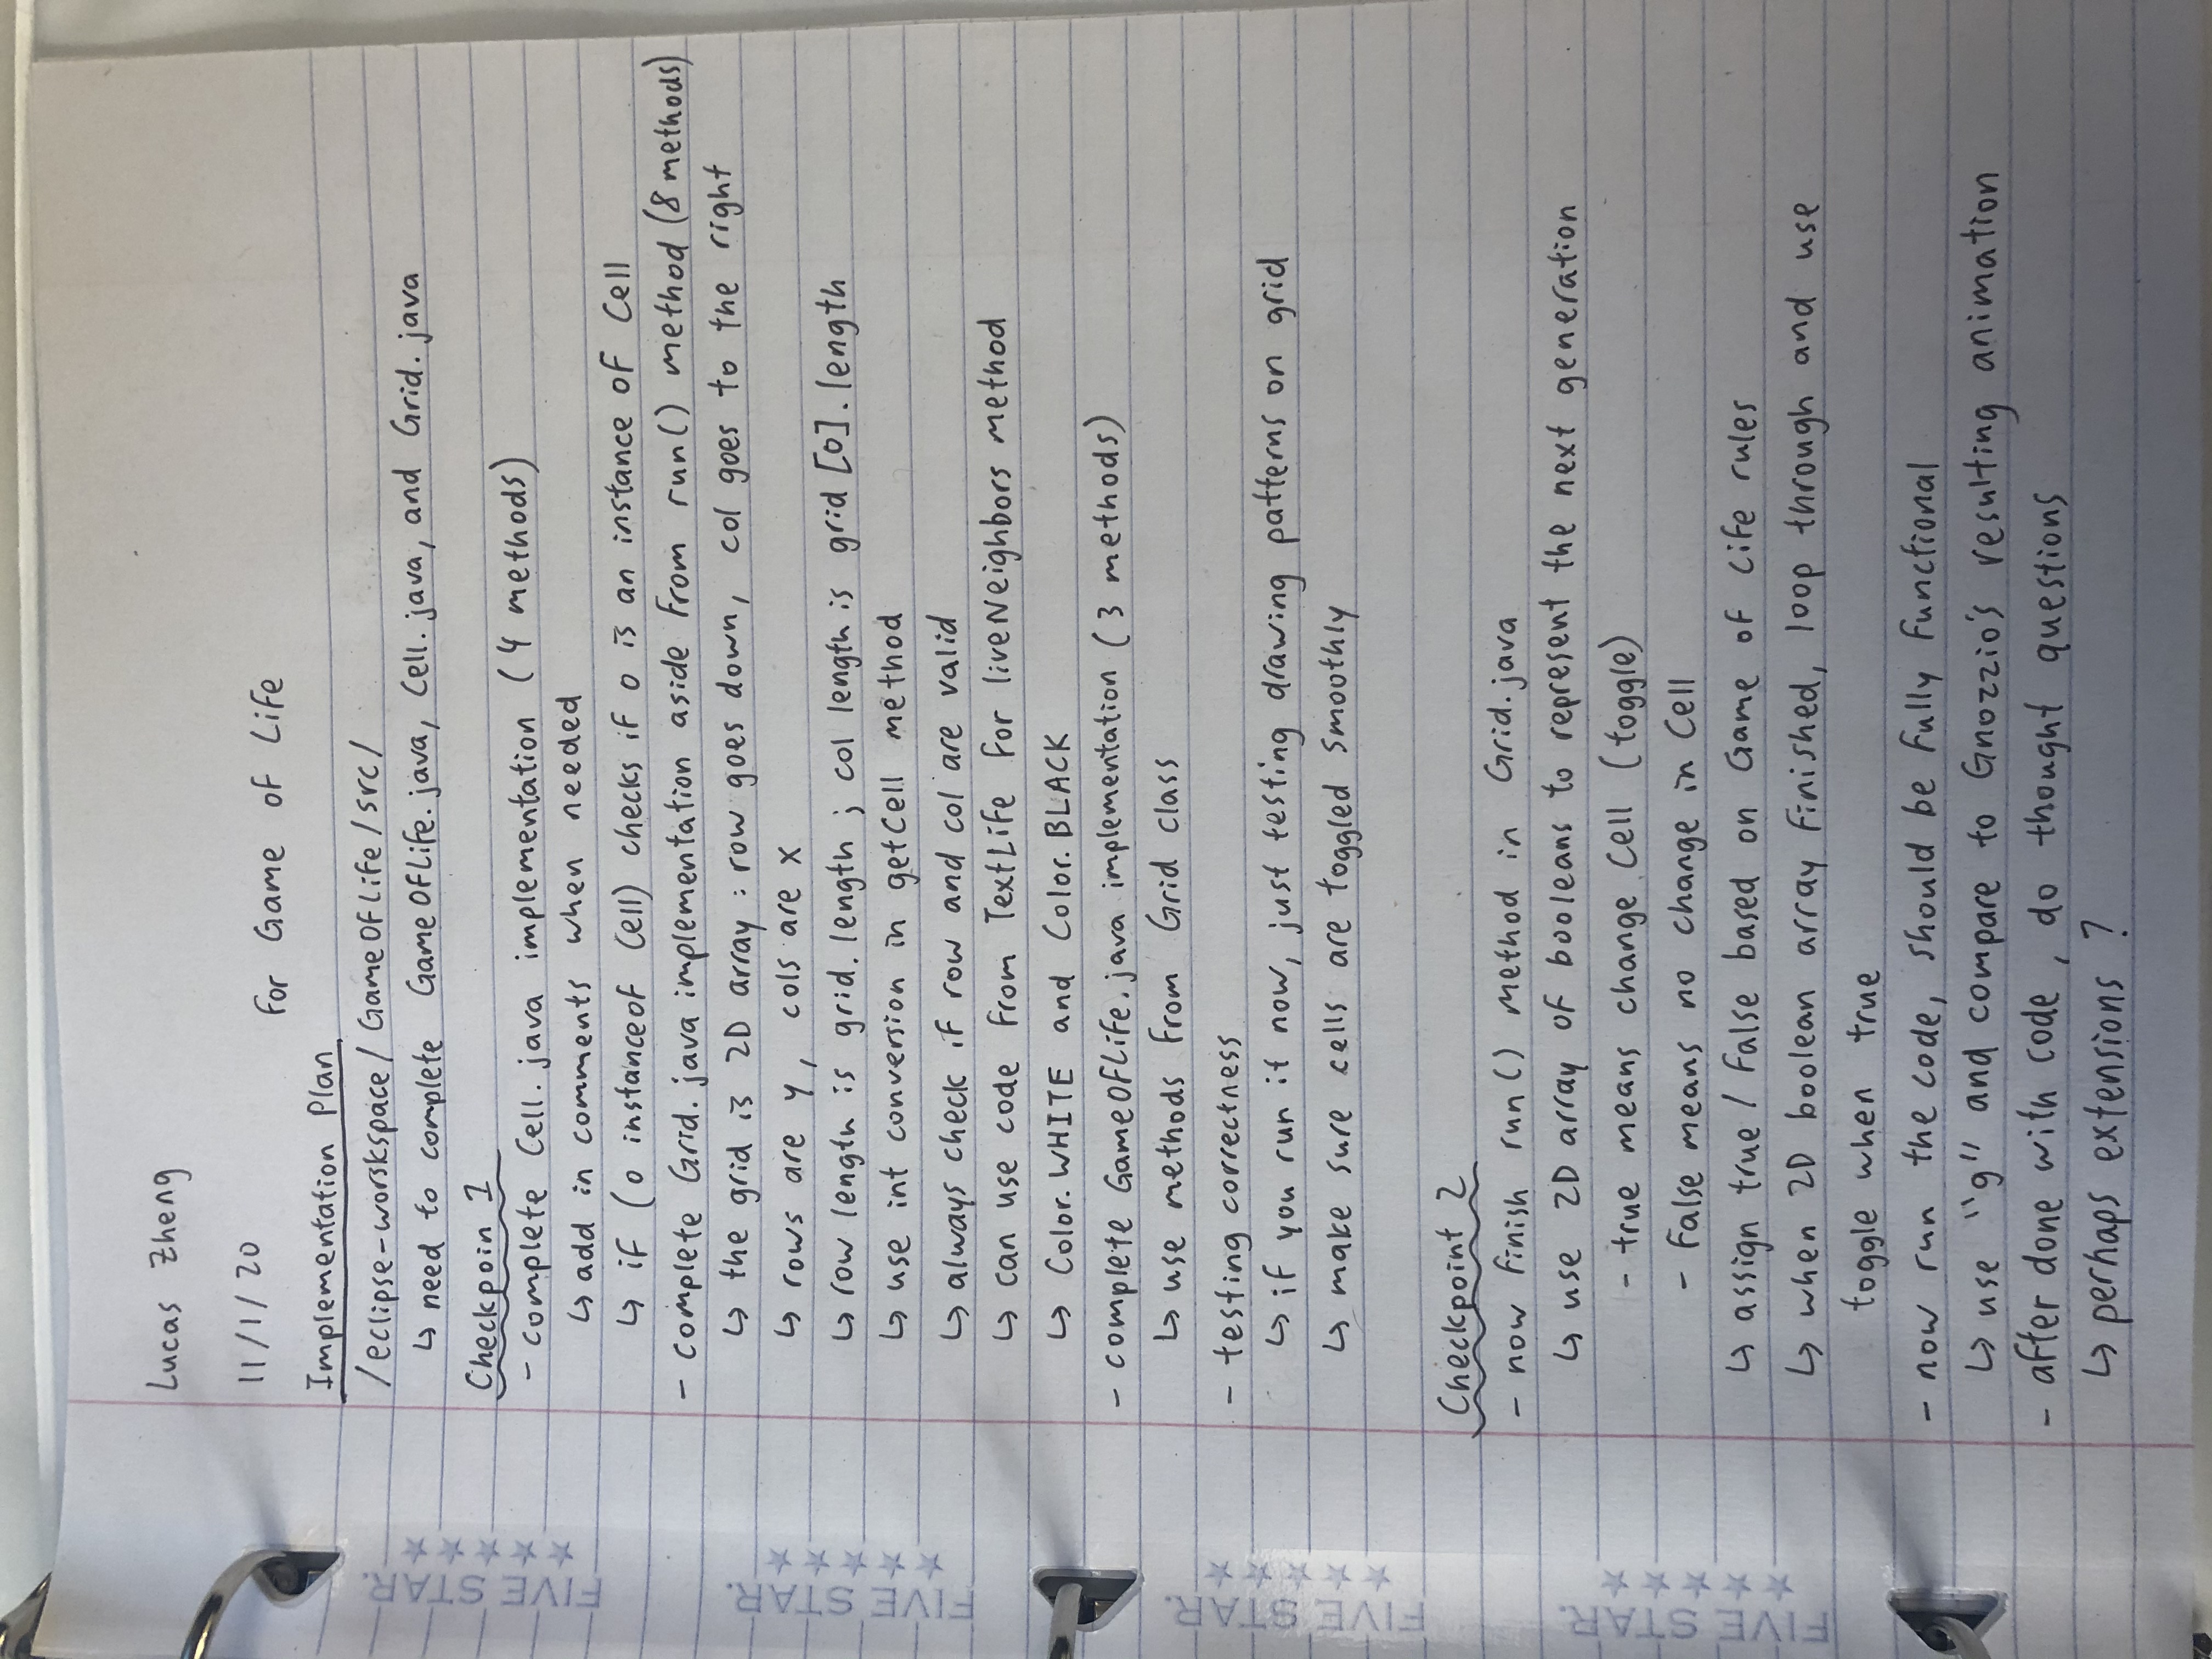 Lucas Zheng
11/1/20
For Game of Life
Implementation Plan
/eclipse-worskspace/GameOfLife/src/
↳ need to complete GameOfLife.java, Cell.java, and Grid.java
Checkpoin 1
- complete Cell.java implementation (4 methods)
↳ add in comments when needed
↳ if (o instanceof Cell) checks if o is an instance of Cell
- complete Grid.java implementation aside from run() method (8 methods)
↳ the grid is 2D array : row goes down, col goes to the right
↳ rows are y, cols are x
↳ row length is grid.length ; col length is grid[0].length
↳ use int conversion in getCell method
↳ always check if row and col are valid
↳ can use code from TextLife for liveNeighbors method
↳ Color.WHITE and Color.BLACK
- complete GameOfLife.java implementation (3 methods)
↳ use methods from Grid class
- testing correctness
↳ if you run it now, just testing drawing patterns on grid
↳ make sure cells are toggled smoothly
Checkpoint 2
- now finish run() method in Grid.java
↳ use 2D array of booleans to represent the next generation
- true means change Cell (toggle)
- False means no change in Cell
↳ assign true / False based on Game of Life rules
↳ when 2D boolean array finished, loop through and use
toggle when true
- now run the code, should be fully functional
↳ use "g" and compare to Gnozzio's resulting animation
- after done with code, do thought questions
↳ perhaps extensions ?
FIVE STAR.
★★★★★
FIVE STAR.
★★★★★
FIVE STAR.
★★★★★
FIVE STAR.
★★★★★